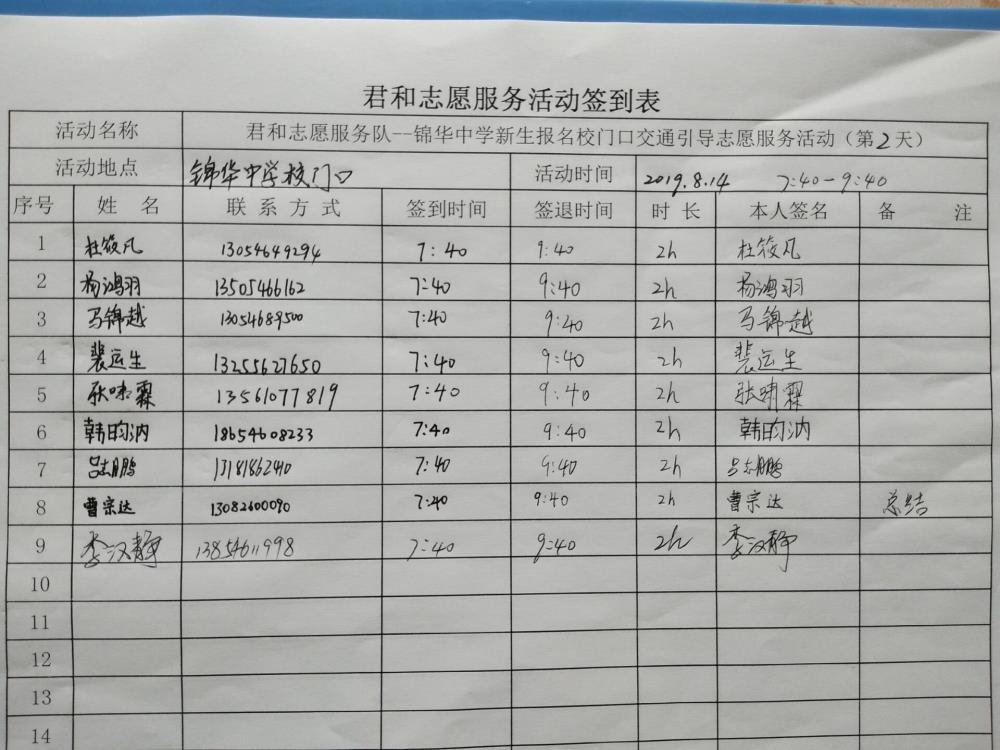 君和志愿服务活动签到表
活动名称 君和志愿服务队--锦华中学新生报名校门口交通引导志愿服务活动（第2天）
活动地点 锦华中学校门口 活动时间 2019.8.14 7:40-9:40
序号 姓 名 联 系 方 式 签到时间 签退时间 时 长 本人签名 备 注
1 杜筱凡 13054649294 7:40 9:40 2h 杜筱凡
2 杨鸿羽 13505466162 7:40 9:40 2h 杨鸿羽
3 马锦越 13054689500 7:40 9:40 2h 马锦越
4 裴运生 13255627650 7:40 9:40 2h 裴运生
5 张啸霖 13561077819 7:40 9:40 2h 张啸霖
6 韩昀汭 18654608233 7:40 9:40 2h 韩昀汭
7 吕志鹏 13181862410 7:40 9:40 2h 吕志鹏
8 曹宗达 13082600090 7:40 9:40 2h 曹宗达 总结
9 李汉静 13854611998 7:40 9:40 2h 李汉静
10
11
12
13
14